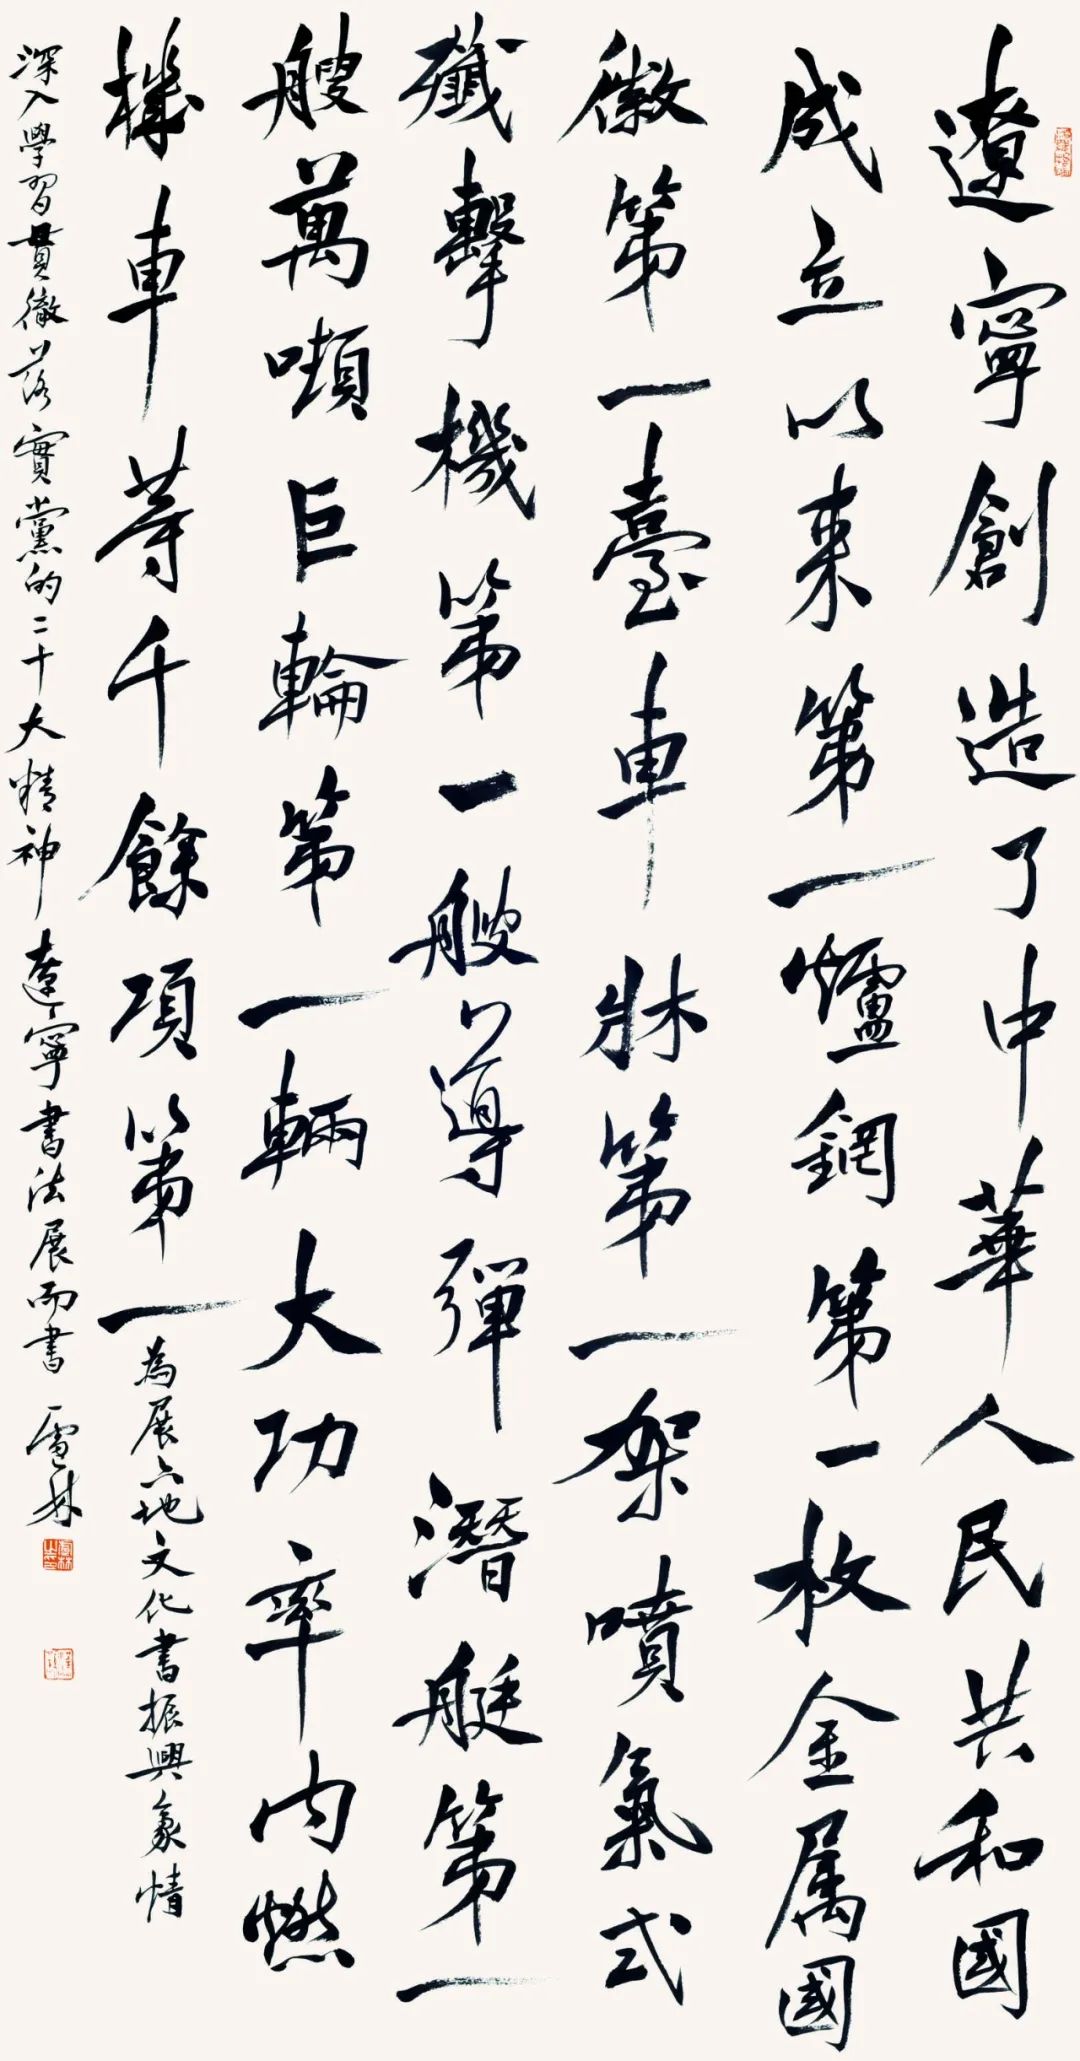 遼寧創造了中華人民共和國
成立以来第一爐鋼第一枚金属國
徽第一臺車牀第一架噴氣式
殲擊機第一艘導彈潛艇第一
艘萬噸巨輪第一輛大功率内燃
機車等千餘項第一 為展六地文化書振興豪情
深入學習貫徹落實黨的二十大精神 遼寧書法展而書 盧林